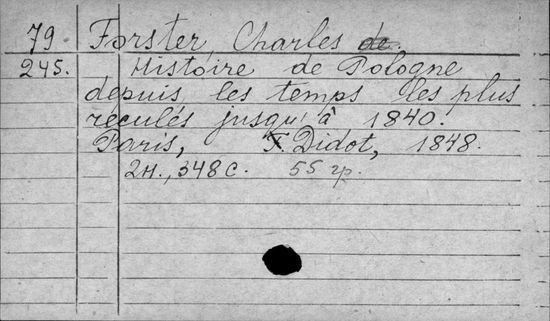 79 Forster, Charles de.
245. Histoire de Pologne
depuis les temps les plus
reculés jusqu'à 1840.
Paris, F. Didot, 1848.
2н., 348 с. 55 гр.